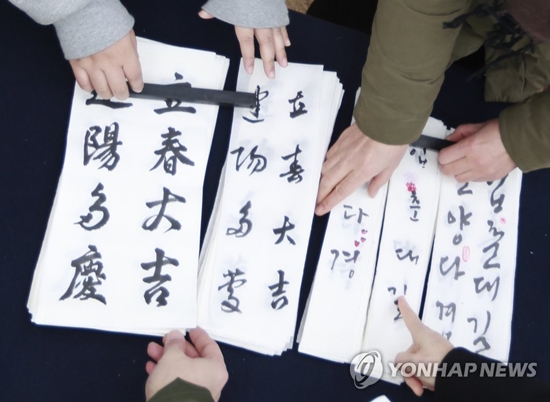 立春大吉
陽多慶
立春大吉
建陽多慶
다경
춘대길
입춘대길
양다경
YONHAP NEWS